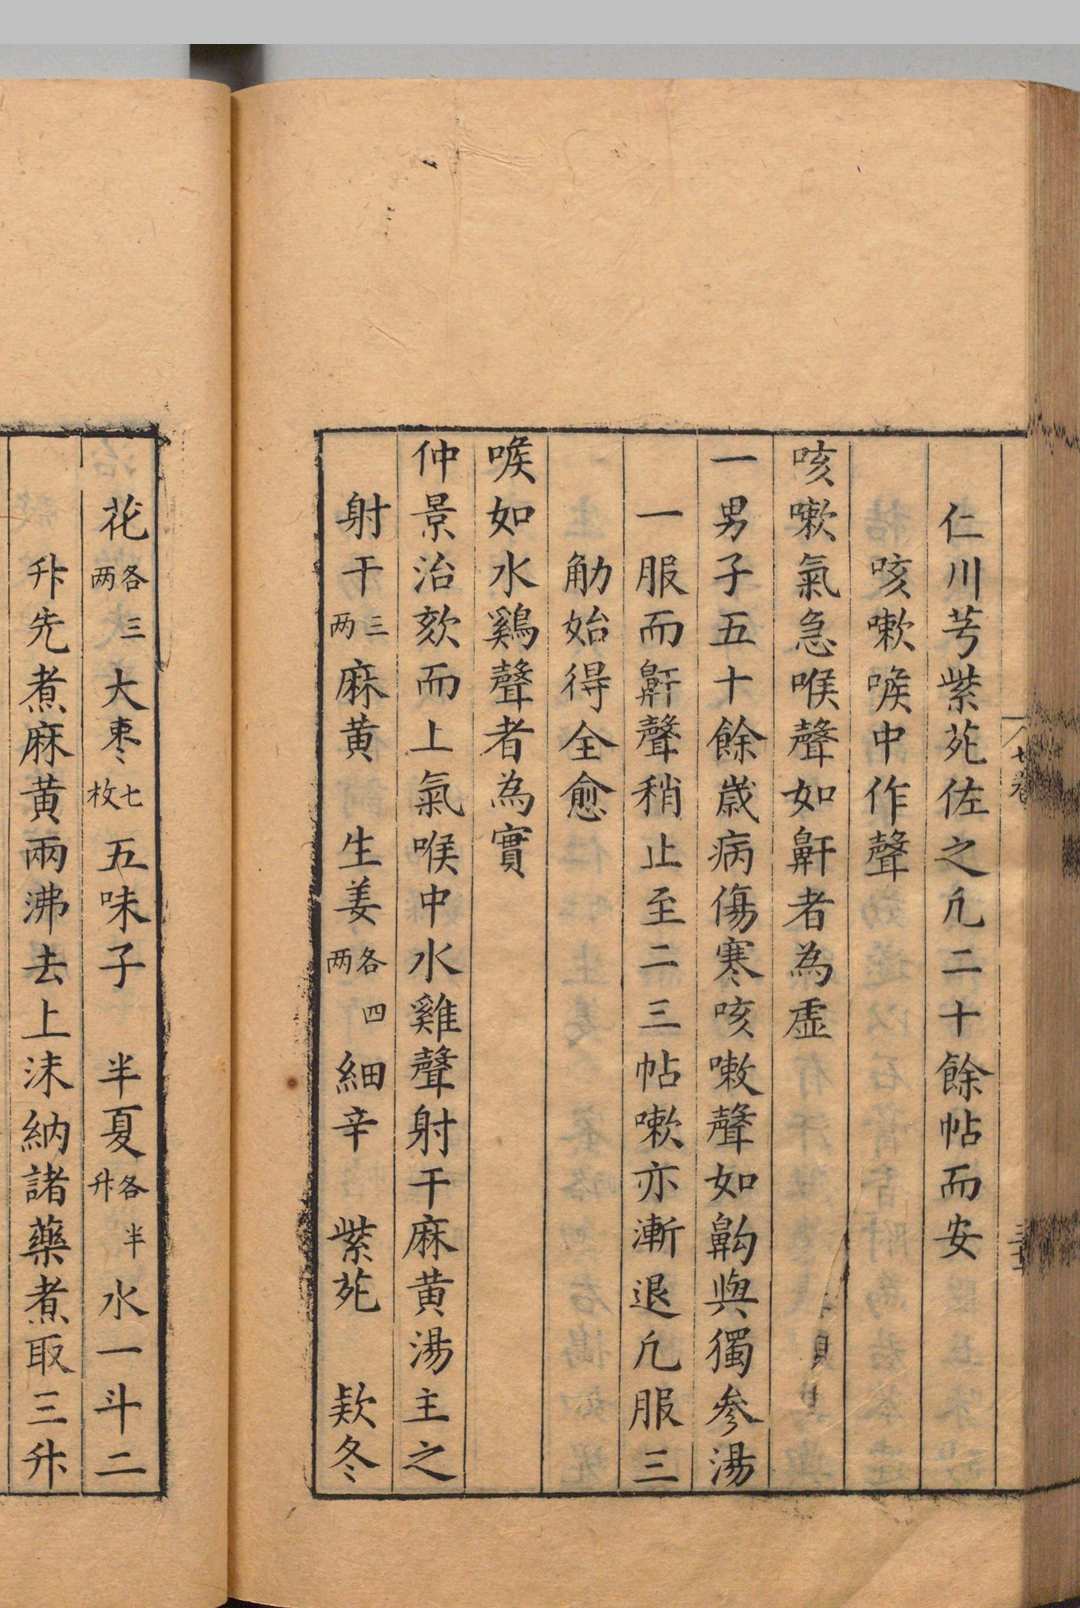 仁川芎紫苑佐之凢二十餘帖而安
咳嗽喉中作聲
咳嗽氣急喉聲如鼾者為虛
一男子五十餘歲病傷寒咳嗽聲如齁與獨參湯
一服而鼾聲稍止至二三帖嗽亦漸退凢服三
觔始得全愈
喉如水鷄聲者為實
仲景治欬而上氣喉中水雞聲射干麻黄湯主之
射干三两麻黄 生姜各四两 細辛 紫苑 欵冬
花各三两 大枣七枚 五味子 半夏各半升 水一斗二
升先煮麻黄兩沸去上沫納諸藥煮取三升